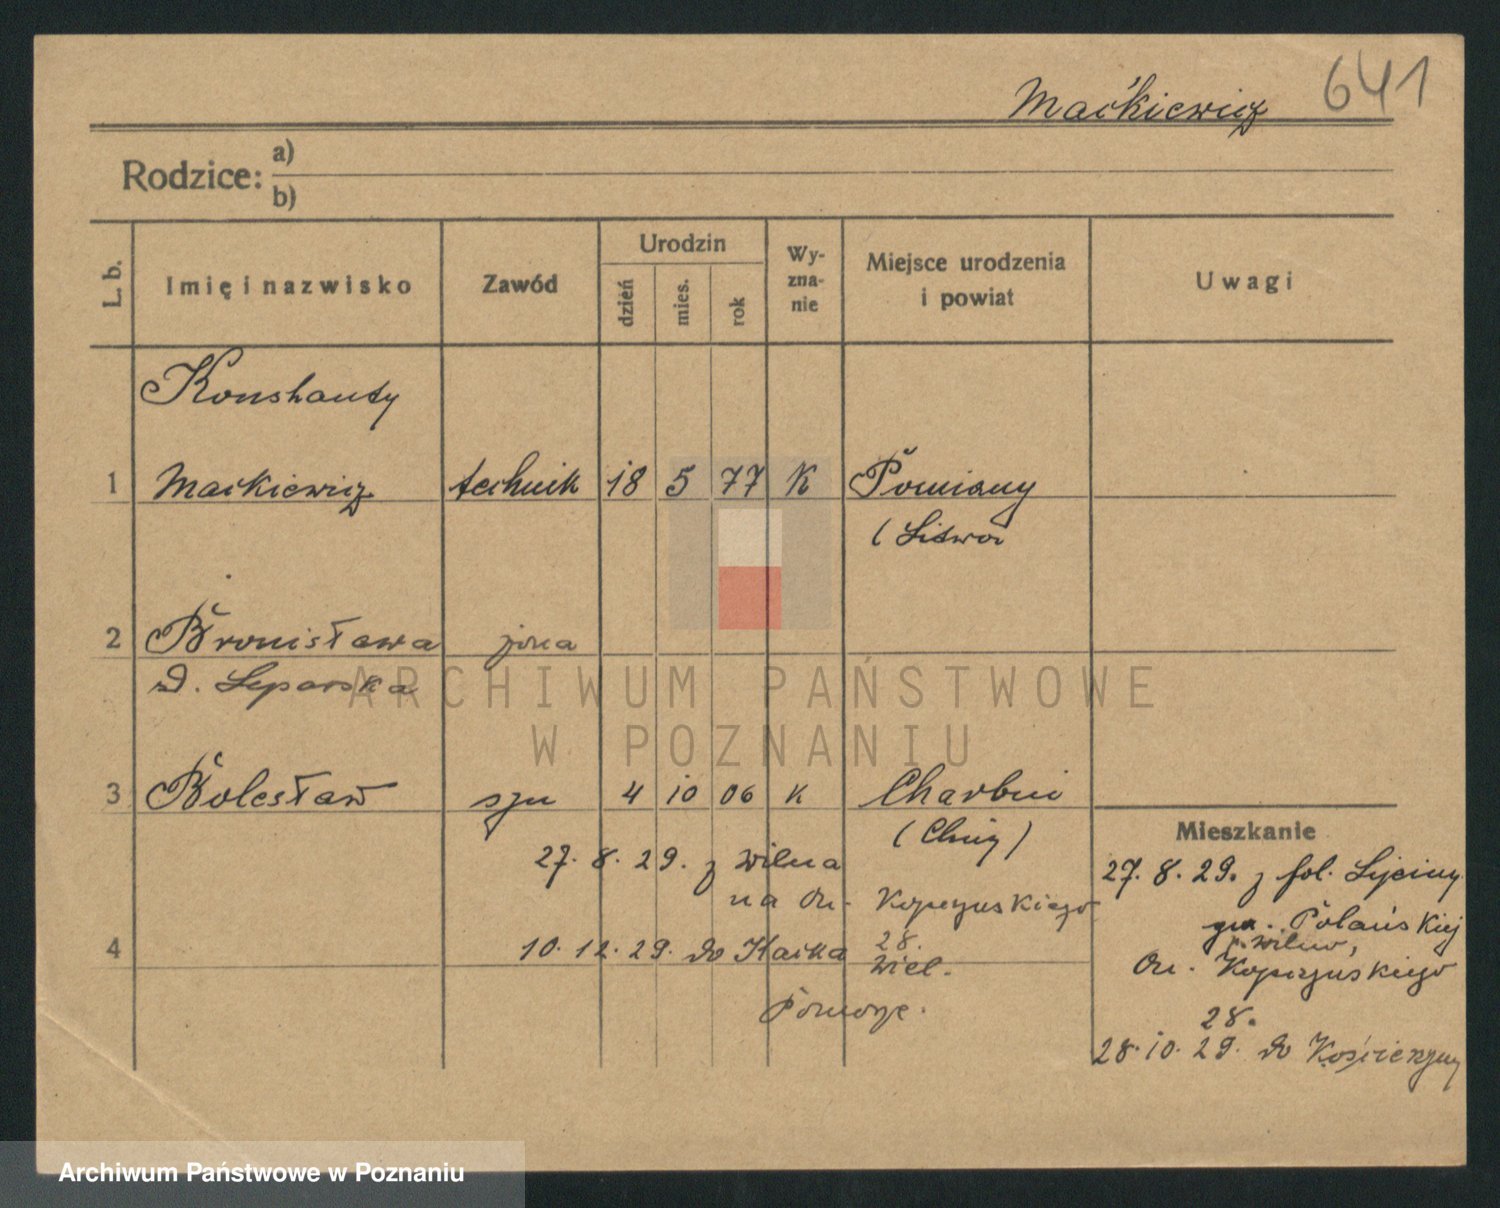 641
Maćkiewicz
Rodzice: a)
b)
L. b.
Imię i nazwisko
Zawód
Urodzin
dzień
mies.
rok
Wy-
zna-
nie
Miejsce urodzenia
i powiat
Uwagi
Konstanty
1 Maćkiewicz technik 18 5 77 K Pomiany
(Litwa
2 Bronisława żona
z d.
3 Bolesław syn 4 10 06 K Charbin
(Chiny)
27. 8. 29. z Wilna
na Ou. Kopczyńskiego
28.
4 10. 12. 29. do Kacka Wiel.
Pomorze.
Mieszkanie
27. 8. 29. z fol.
gm. Polańskiej
p. Wilno,
Ou. Kopczyńskiego
28.
28. 10. 29. do Kościerzyny
ARCHIWUM PAŃSTWOWE
W POZNANIU
Archiwum Państwowe w Poznaniu